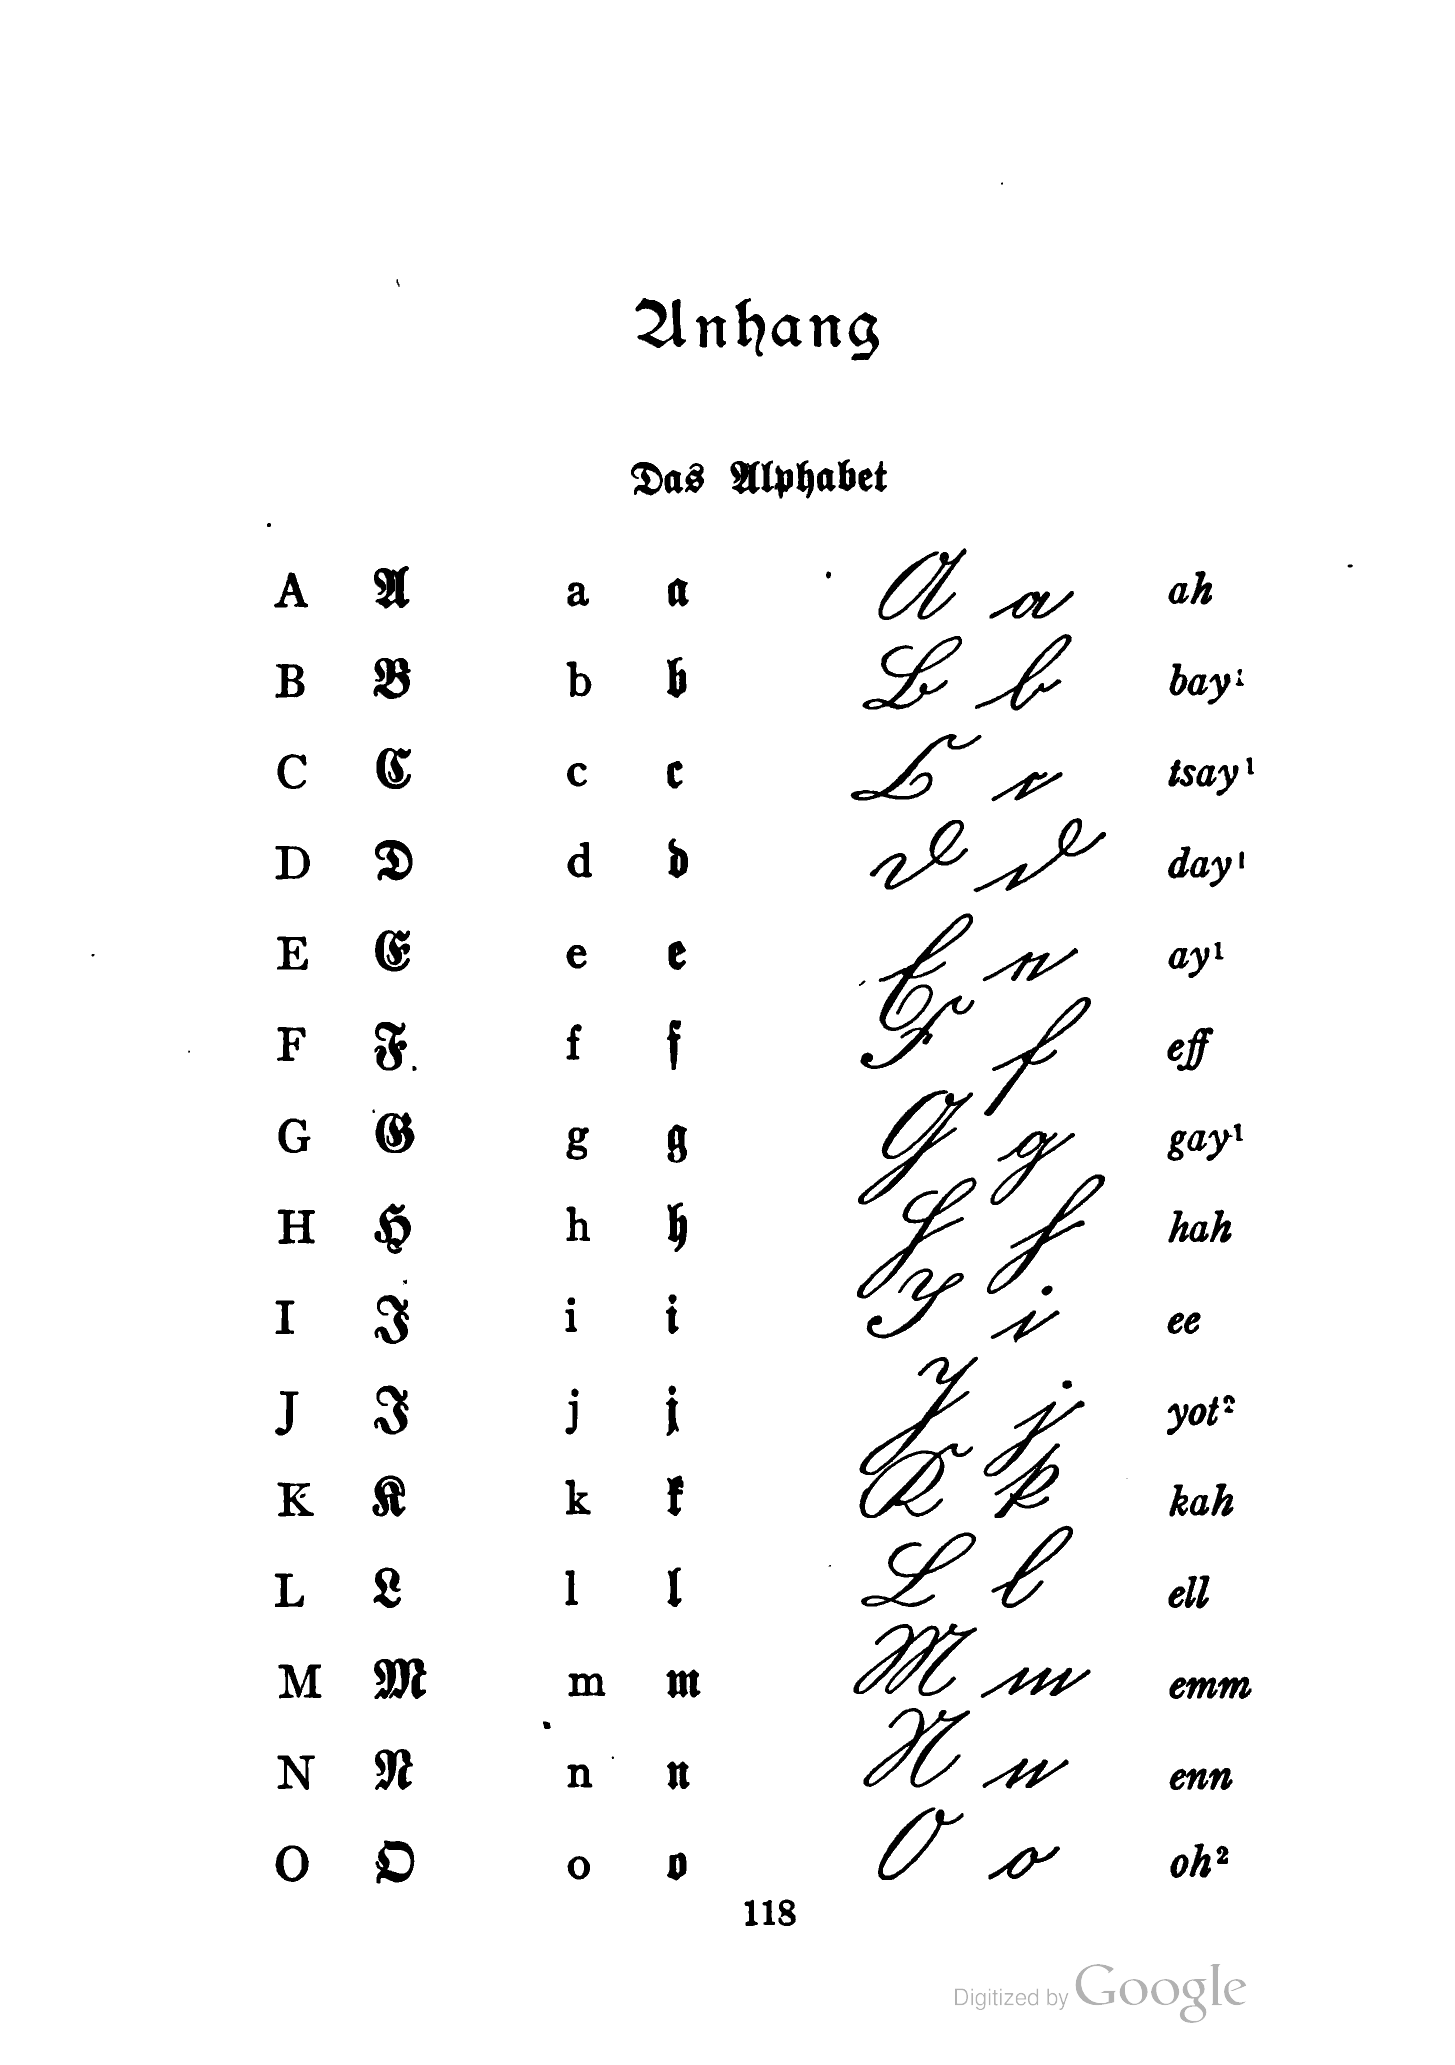 Anhang
Das Alphabet
A A a a A a ah
B B b b B b bay¹
C C c c C c tsay¹
D D d d D d day¹
E E e e E e ay¹
F F f f F f eff
G G g g G g gay¹
H H h h H h hah
I I i i I i ee
J J j j J j yot²
K K k k K k kah
L L l l L l ell
M M m m M m emm
N N n n N n enn
O O o o O o oh²
118
Digitized by Google